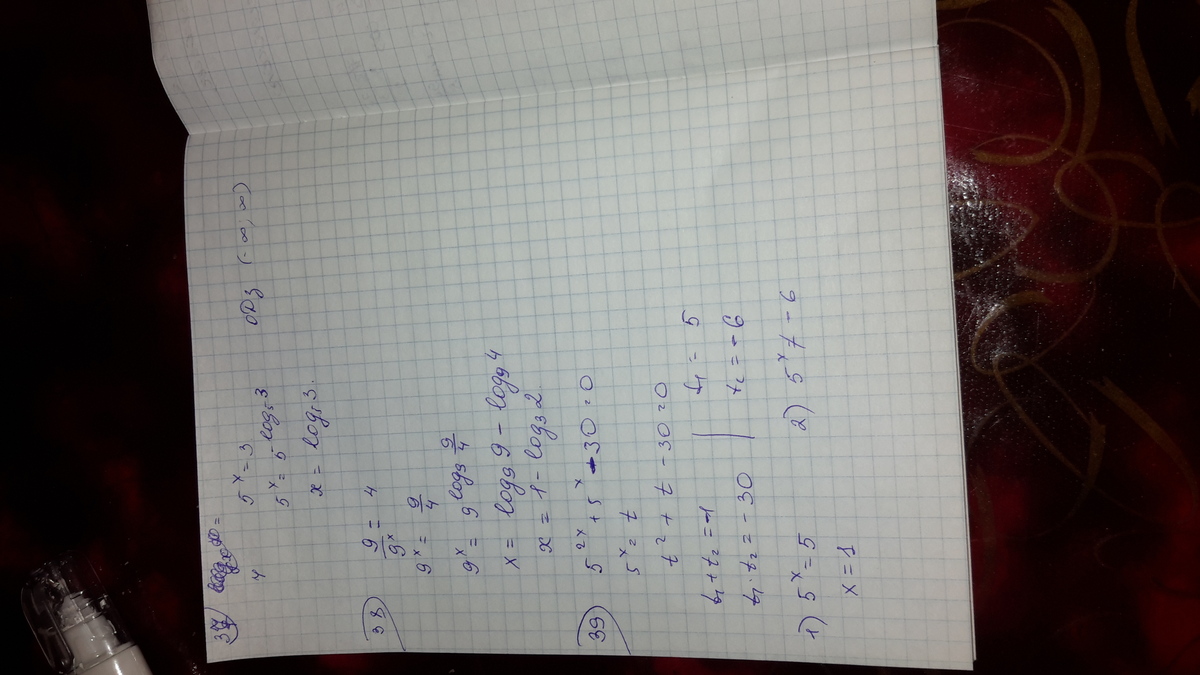 37
5^x = 3 ОДЗ (-∞, ∞)
5^x = 5^log₅3
x = log₅3.
38 9/9^x = 4
9^x = 9/4
9^x = 9^log₉ 9/4
x = log₉9 - log₉4
x = 1 - log₃2.
39 5^2x + 5^x - 30 = 0
5^x = t
t² + t - 30 = 0
t₁ + t₂ = -1 | t₁ = 5
t₁ · t₂ = -30 | t₂ = -6
1) 5^x = 5 2) 5^x ≠ -6
x = 1